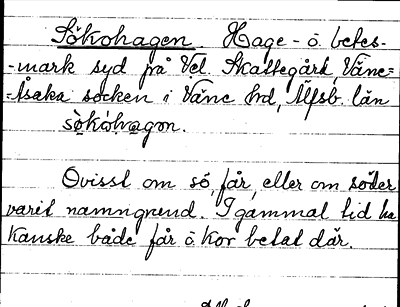 Sökohagen. Hage- ö. betes-
-mark syd på Vel. Skattegård, Väne=
=Åsaka socken i Väne hd, Älfsb. län
sò̤kóha̤gon.
Ovisst om so, får, eller om söder
varit namngivend. I gammal tid ha
kanske både får ö. kor betat där.